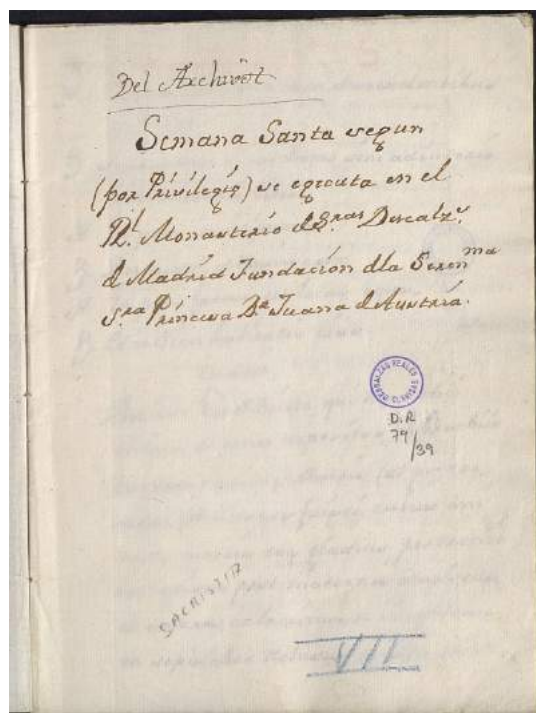 Del Archivo
Semana Santa segun
(por Privilegio) se egecuta en el
Rl. Monasterio de Sras Descalzs.
d Madrid Fundación dla Serenma
Sra Princesa Da Juana d Austria.
DESCALZAS REALES
CLARISAS
D.R
79/39
SACRISTIA
VII